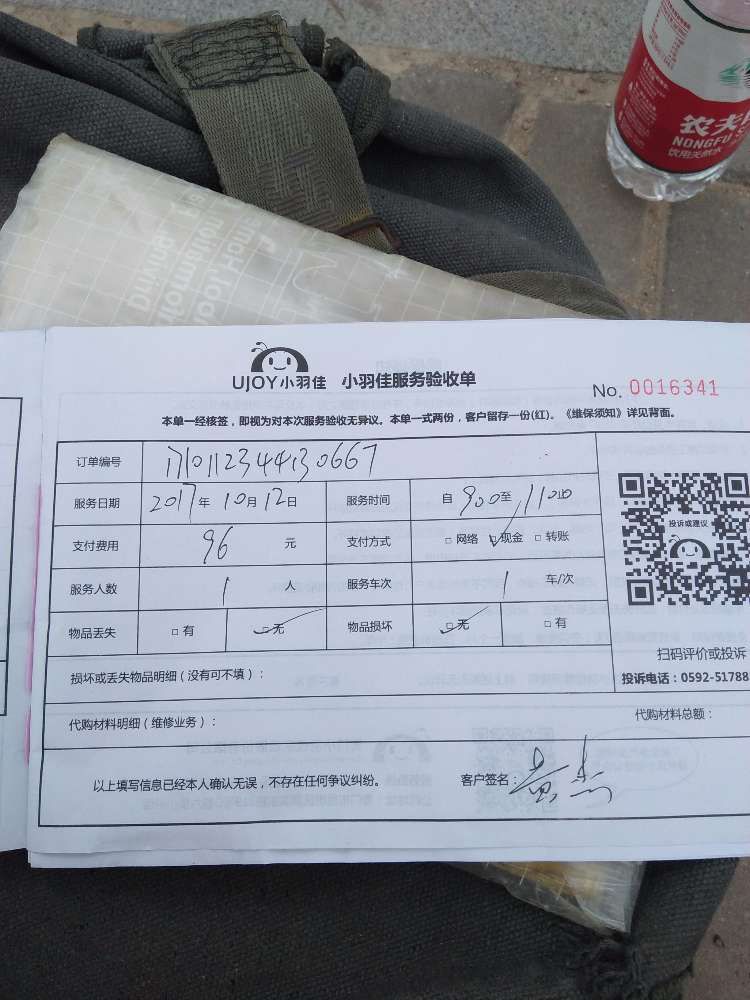 农夫
NONGFU S
饮用天然水
Driving
UJOY小羽佳 小羽佳服务验收单
No. 0016341
本单一经核签，即视为对本次服务验收无异议。本单一式两份，客户留存一份(红)。《维保须知》详见背面。
订单编号 171011234430667
服务日期 2017年10月12日 服务时间 自900至1100止
支付费用 96 元 支付方式 □网络 □现金 □转账
服务人数 1 人 服务车次 1 车/次
物品丢失 □有 □无 物品损坏 □无 □有
投诉或建议
扫码评价或投诉
投诉电话：0592-51788
损坏或丢失物品明细（没有可不填）：
代购材料明细（维修业务）： 代购材料总额：
以上填写信息已经本人确认无误，不存在任何争议纠纷。 客户签名：黄杰